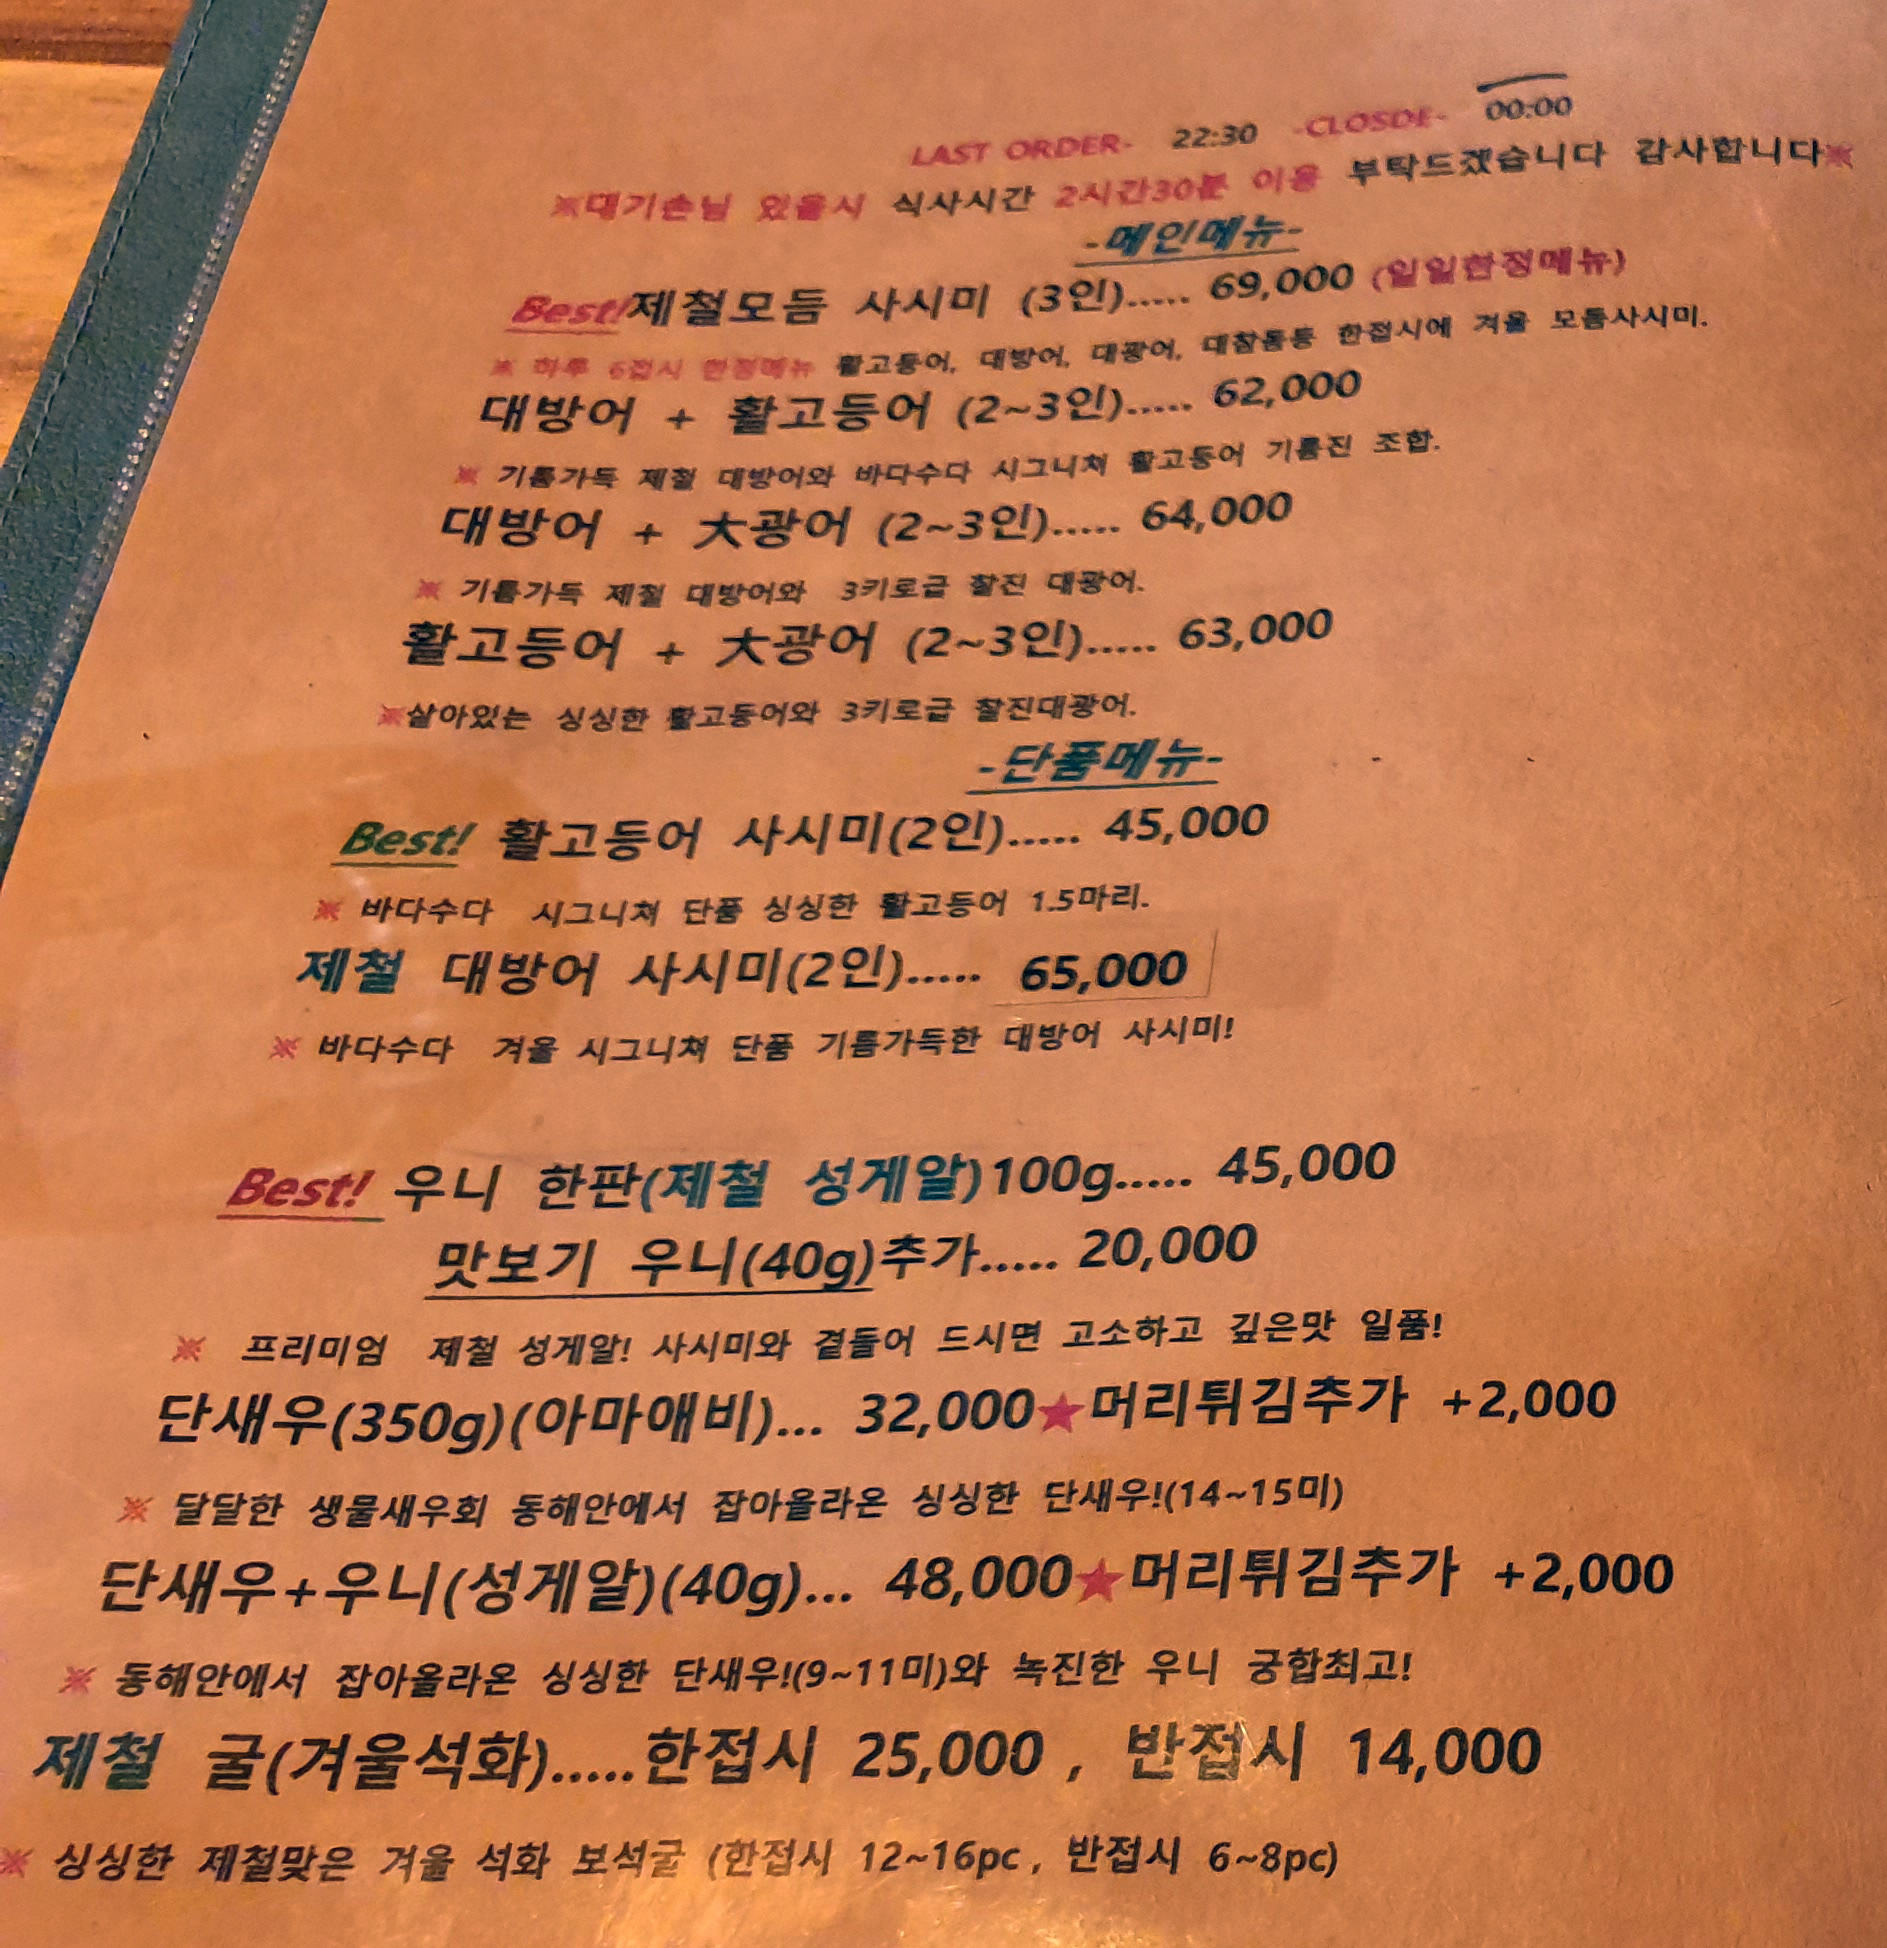 LAST ORDER- 22:30 -CLOSDE- 00:00
※대기손님 있을시 식사시간 2시간30분 이용 부탁드겠습니다 감사합니다※
-메인메뉴-
Best!제철모듬 사시미 (3인)..... 69,000 (일일한정메뉴)
※ 하루 6접시 한정메뉴 활고등어, 대방어, 대광어, 대참돔등 한접시에 겨울 모듬사시미.
대방어 + 활고등어 (2~3인)..... 62,000
※ 기름가득 제철 대방어와 바다수다 시그니쳐 활고등어 기름진 조합.
대방어 + 大광어 (2~3인)..... 64,000
※ 기름가득 제철 대방어와 3키로급 찰진 대광어.
활고등어 + 大광어 (2~3인)..... 63,000
※살아있는 싱싱한 활고등어와 3키로급 찰진대광어.
-단품메뉴-
Best! 활고등어 사시미(2인)..... 45,000
※ 바다수다 시그니쳐 단품 싱싱한 활고등어 1.5마리.
제철 대방어 사시미(2인)..... 65,000
※ 바다수다 겨울 시그니쳐 단품 기름가득한 대방어 사시미!
Best! 우니 한판(제철 성게알)100g..... 45,000
맛보기 우니(40g)추가..... 20,000
※ 프리미엄 제철 성게알! 사시미와 곁들어 드시면 고소하고 깊은맛 일품!
단새우(350g)(아마애비)... 32,000★머리튀김추가 +2,000
※ 달달한 생물새우회 동해안에서 잡아올라온 싱싱한 단새우!(14~15미)
단새우+우니(성게알)(40g)... 48,000★머리튀김추가 +2,000
※ 동해안에서 잡아올라온 싱싱한 단새우!(9~11미)와 녹진한 우니 궁합최고!
제철 굴(겨울석화).....한접시 25,000 , 반접시 14,000
※ 싱싱한 제철맞은 겨울 석화 보석굴 (한접시 12~16pc , 반접시 6~8pc)